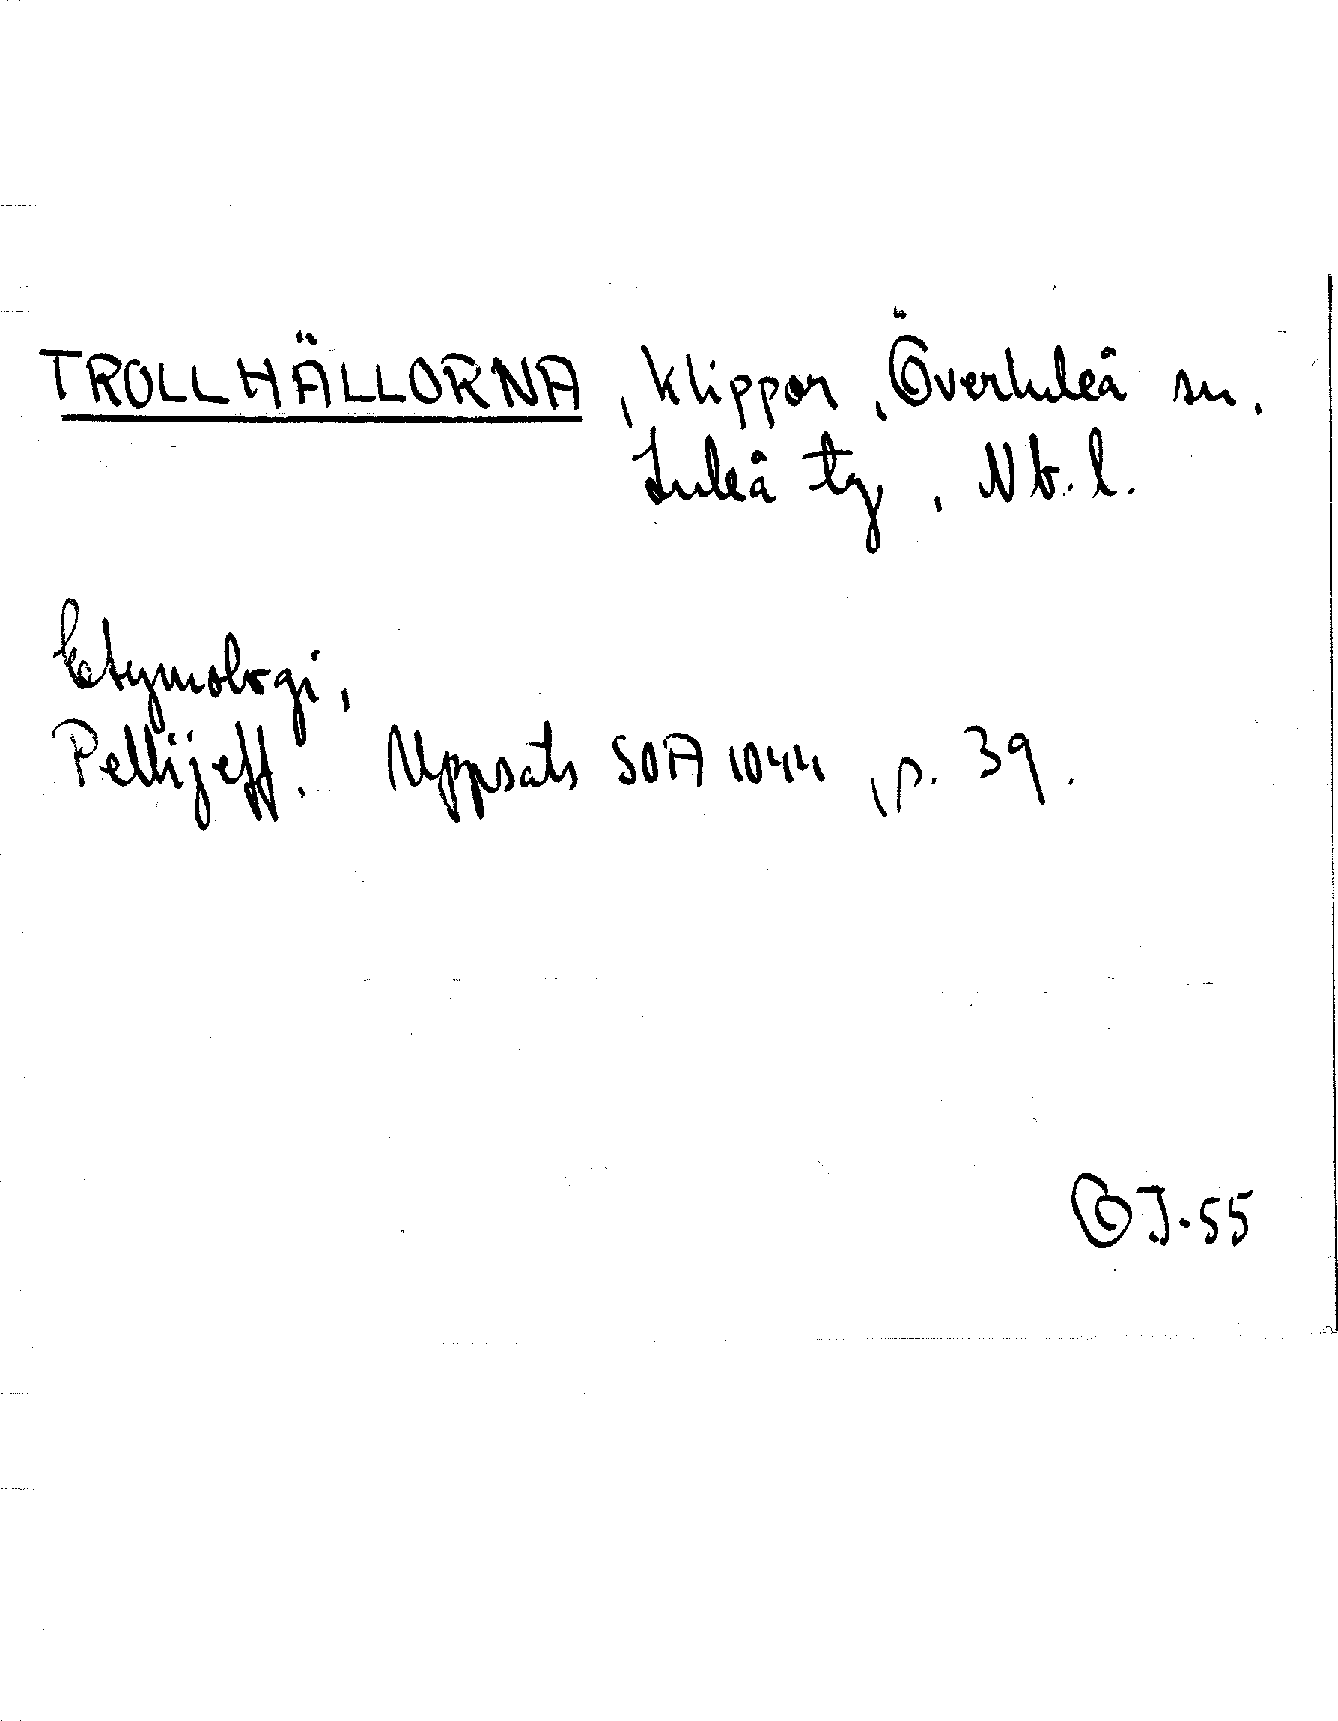 TROLLHÄLLORNA, klippor, Överluleå sn.
Luleå tg, Nb. l.
Etymologi,
Pellijeff. Uppsats SOA 1044, p. 39.
OJ. 55